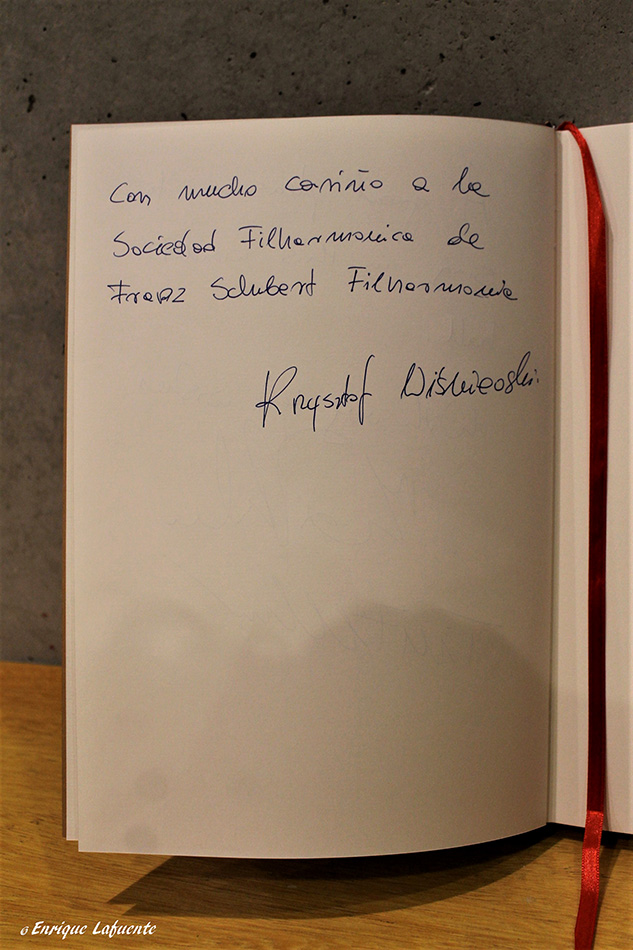 Con mucho cariño a la
Sociedad Filharmonica de
Franz Schubert Filharmonia
Krzysztof Wiśniewski
© Enrique Lafuente